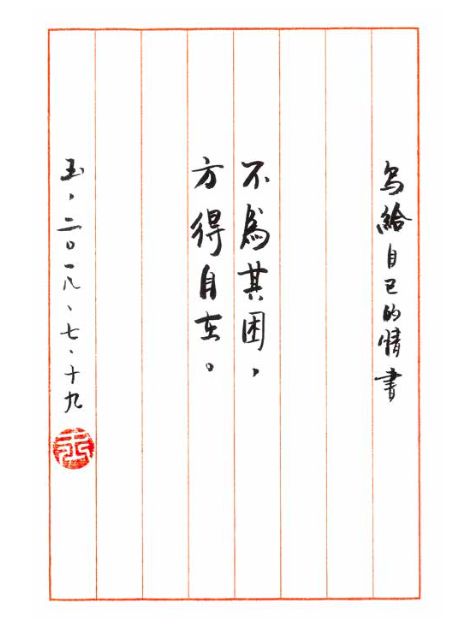 写給自己的情書
不為其困，
方得自在。
玉，二〇一八、七、十九